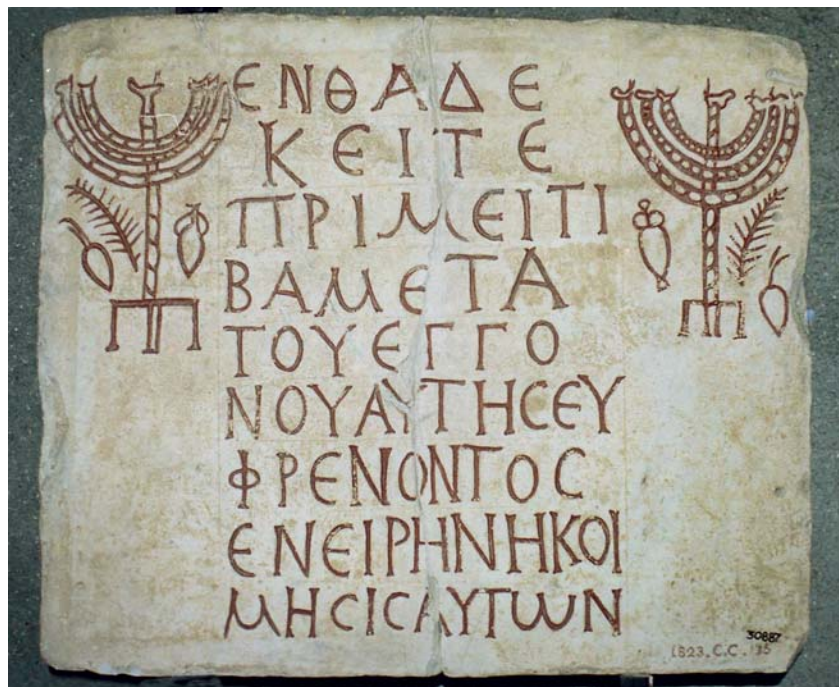 ΕΝΘΑΔΕ
ΚΕΙΤΕ
ΠΡΙΜΕΙΤΙ
ΒΑΜΕΤΑ
ΤΟΥΕΓΓΟ
ΝΟΥΑΥΤΗϹΕΥ
ΦΡΕΝΟΝΤΟϹ
ΕΝΕΙΡΗΝΗΚΟΙ
ΜΗϹΙϹΑΥΤΩΝ
30887
1823.C.C.135